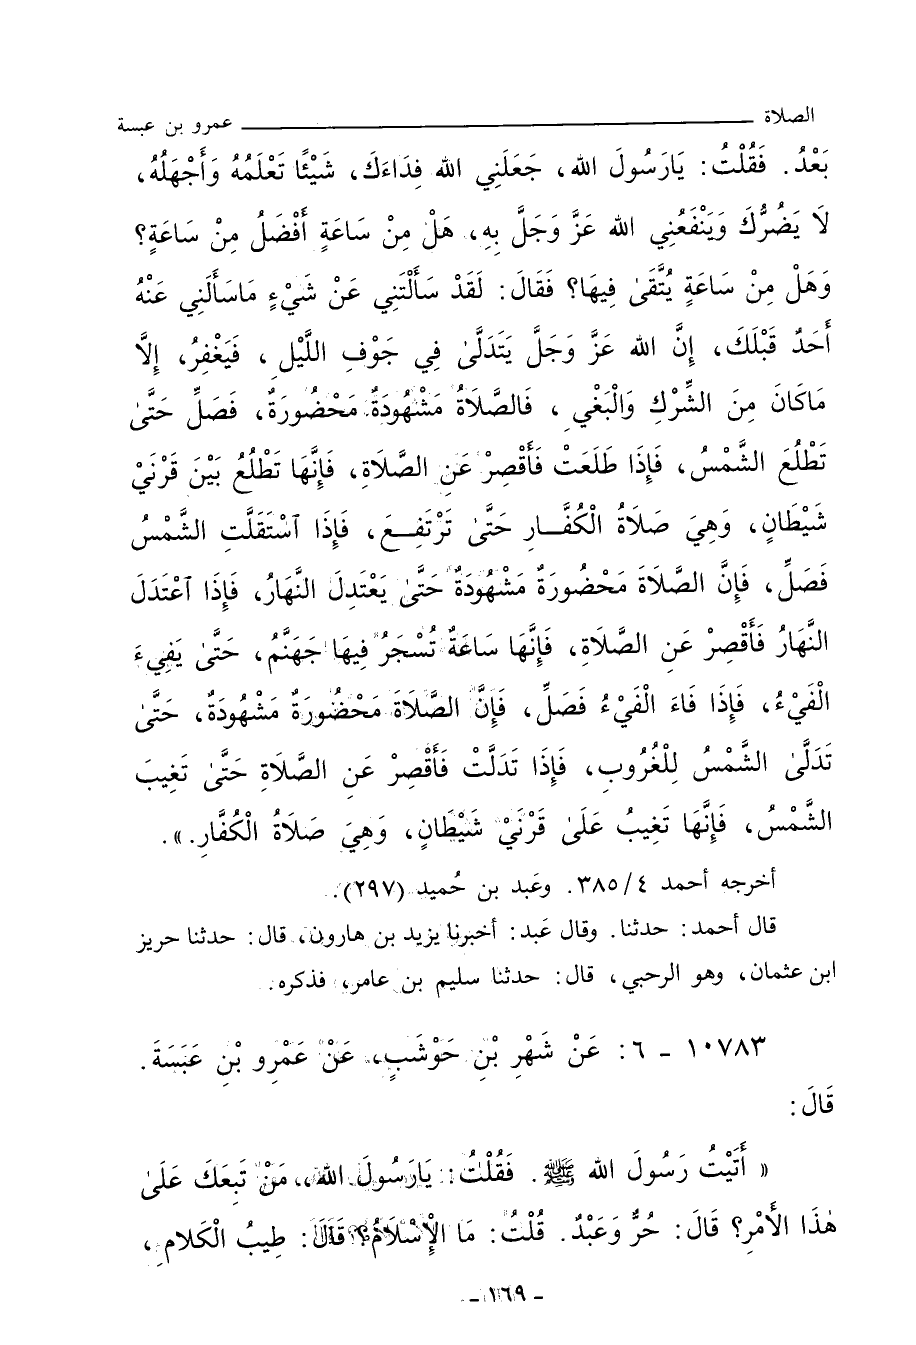 الصلاة ـــــــــــــــــــــــــــــــ عمرو بن عبسة
بَعْدُ. فَقُلْتُ: يَارَسُولَ الله، جَعَلَنِي الله فِدَاءَكَ، شَيْئًا تَعْلَمُهُ وَأَجْهَلُهُ،
لَا يَضُرُّكَ وَيَنْفَعُنِي الله عَزَّ وَجَلَّ بِهِ، هَلْ مِنْ سَاعَةٍ أَفْضَلُ مِنْ سَاعَةٍ؟
وَهَلْ مِنْ سَاعَةٍ يُتَّقَىٰ فِيهَا؟ فَقَالَ: لَقَدْ سَأَلْتَنِي عَنْ شَيْءٍ مَاسَأَلَنِي عَنْهُ
أَحَدٌ قَبْلَكَ، إِنَّ الله عَزَّ وَجَلَّ يَتَدَلَّىٰ فِي جَوْفِ اللَّيْلِ، فَيَغْفِرُ، إِلَّا
مَاكَانَ مِنَ الشِّرْكِ وَالْبَغْيِ، فَالصَّلَاةُ مَشْهُودَةٌ مَحْضُورَةٌ، فَصَلِّ حَتَّىٰ
تَطْلُعَ الشَّمْسُ، فَإِذَا طَلَعَتْ فَأَقْصِرْ عَنِ الصَّلَاةِ، فَإِنَّهَا تَطْلُعُ بَيْنَ قَرْنَيْ
شَيْطَانٍ، وَهِيَ صَلَاةُ الْكُفَّـارِ حَتَّىٰ تَرْتَفِـعَ، فَإِذَا ٱسْتَقَلَّتِ الشَّمْسُ
فَصَلِّ، فَإِنَّ الصَّلَاةَ مَحْضُورَةٌ مَشْهُودَةٌ حَتَّىٰ يَعْتَدِلَ النَّهَارُ، فَإِذَا ٱعْتَدَلَ
النَّهَارُ فَأَقْصِرْ عَنِ الصَّلَاةِ، فَإِنَّهَا سَاعَةٌ تُسْجَرُ فِيهَا جَهَنَّمُ، حَتَّىٰ يَفِيءَ
الْفَيْءُ، فَإِذَا فَاءَ الْفَيْءُ فَصَلِّ، فَإِنَّ الصَّلَاةَ مَحْضُورَةٌ مَشْهُودَةٌ، حَتَّىٰ
تَدَلَّىٰ الشَّمْسُ لِلْغُرُوبِ، فَإِذَا تَدَلَّتْ فَأَقْصِرْ عَنِ الصَّلَاةِ حَتَّىٰ تَغِيبَ
الشَّمْسُ، فَإِنَّهَا تَغِيبُ عَلَىٰ قَرْنَيْ شَيْطَانٍ، وَهِيَ صَلَاةُ الْكُفَّارِ.».
أخرجه أحمد ٤/٣٨٥. وعَبد بن حُميد (٢٩٧).
قال أحمد: حدثنا. وقال عَبد: أخبرنا يزيد بن هارون، قال: حدثنا حريز
ابن عثمان، وهو الرحبي، قال: حدثنا سليم بن عامر، فذكره.
١٠٧٨٣ - ٦: عَنْ شَهْرِ بْنِ حَوْشَبٍ، عَنْ عَمْرِو بْنِ عَبَسَةَ.
قَالَ:
« أَتَيْتُ رَسُولَ الله ﷺ. فَقُلْتُ: يَارَسُولَ الله، مَنْ تَبِعَكَ عَلَىٰ
هٰذَا الأَمْرِ؟ قَالَ: حُرٌّ وَعَبْدٌ. قُلْتُ: مَا الْإِسْلَامُ؟ قَالَ: طِيبُ الْكَلَامِ،
- ١٦٩ -